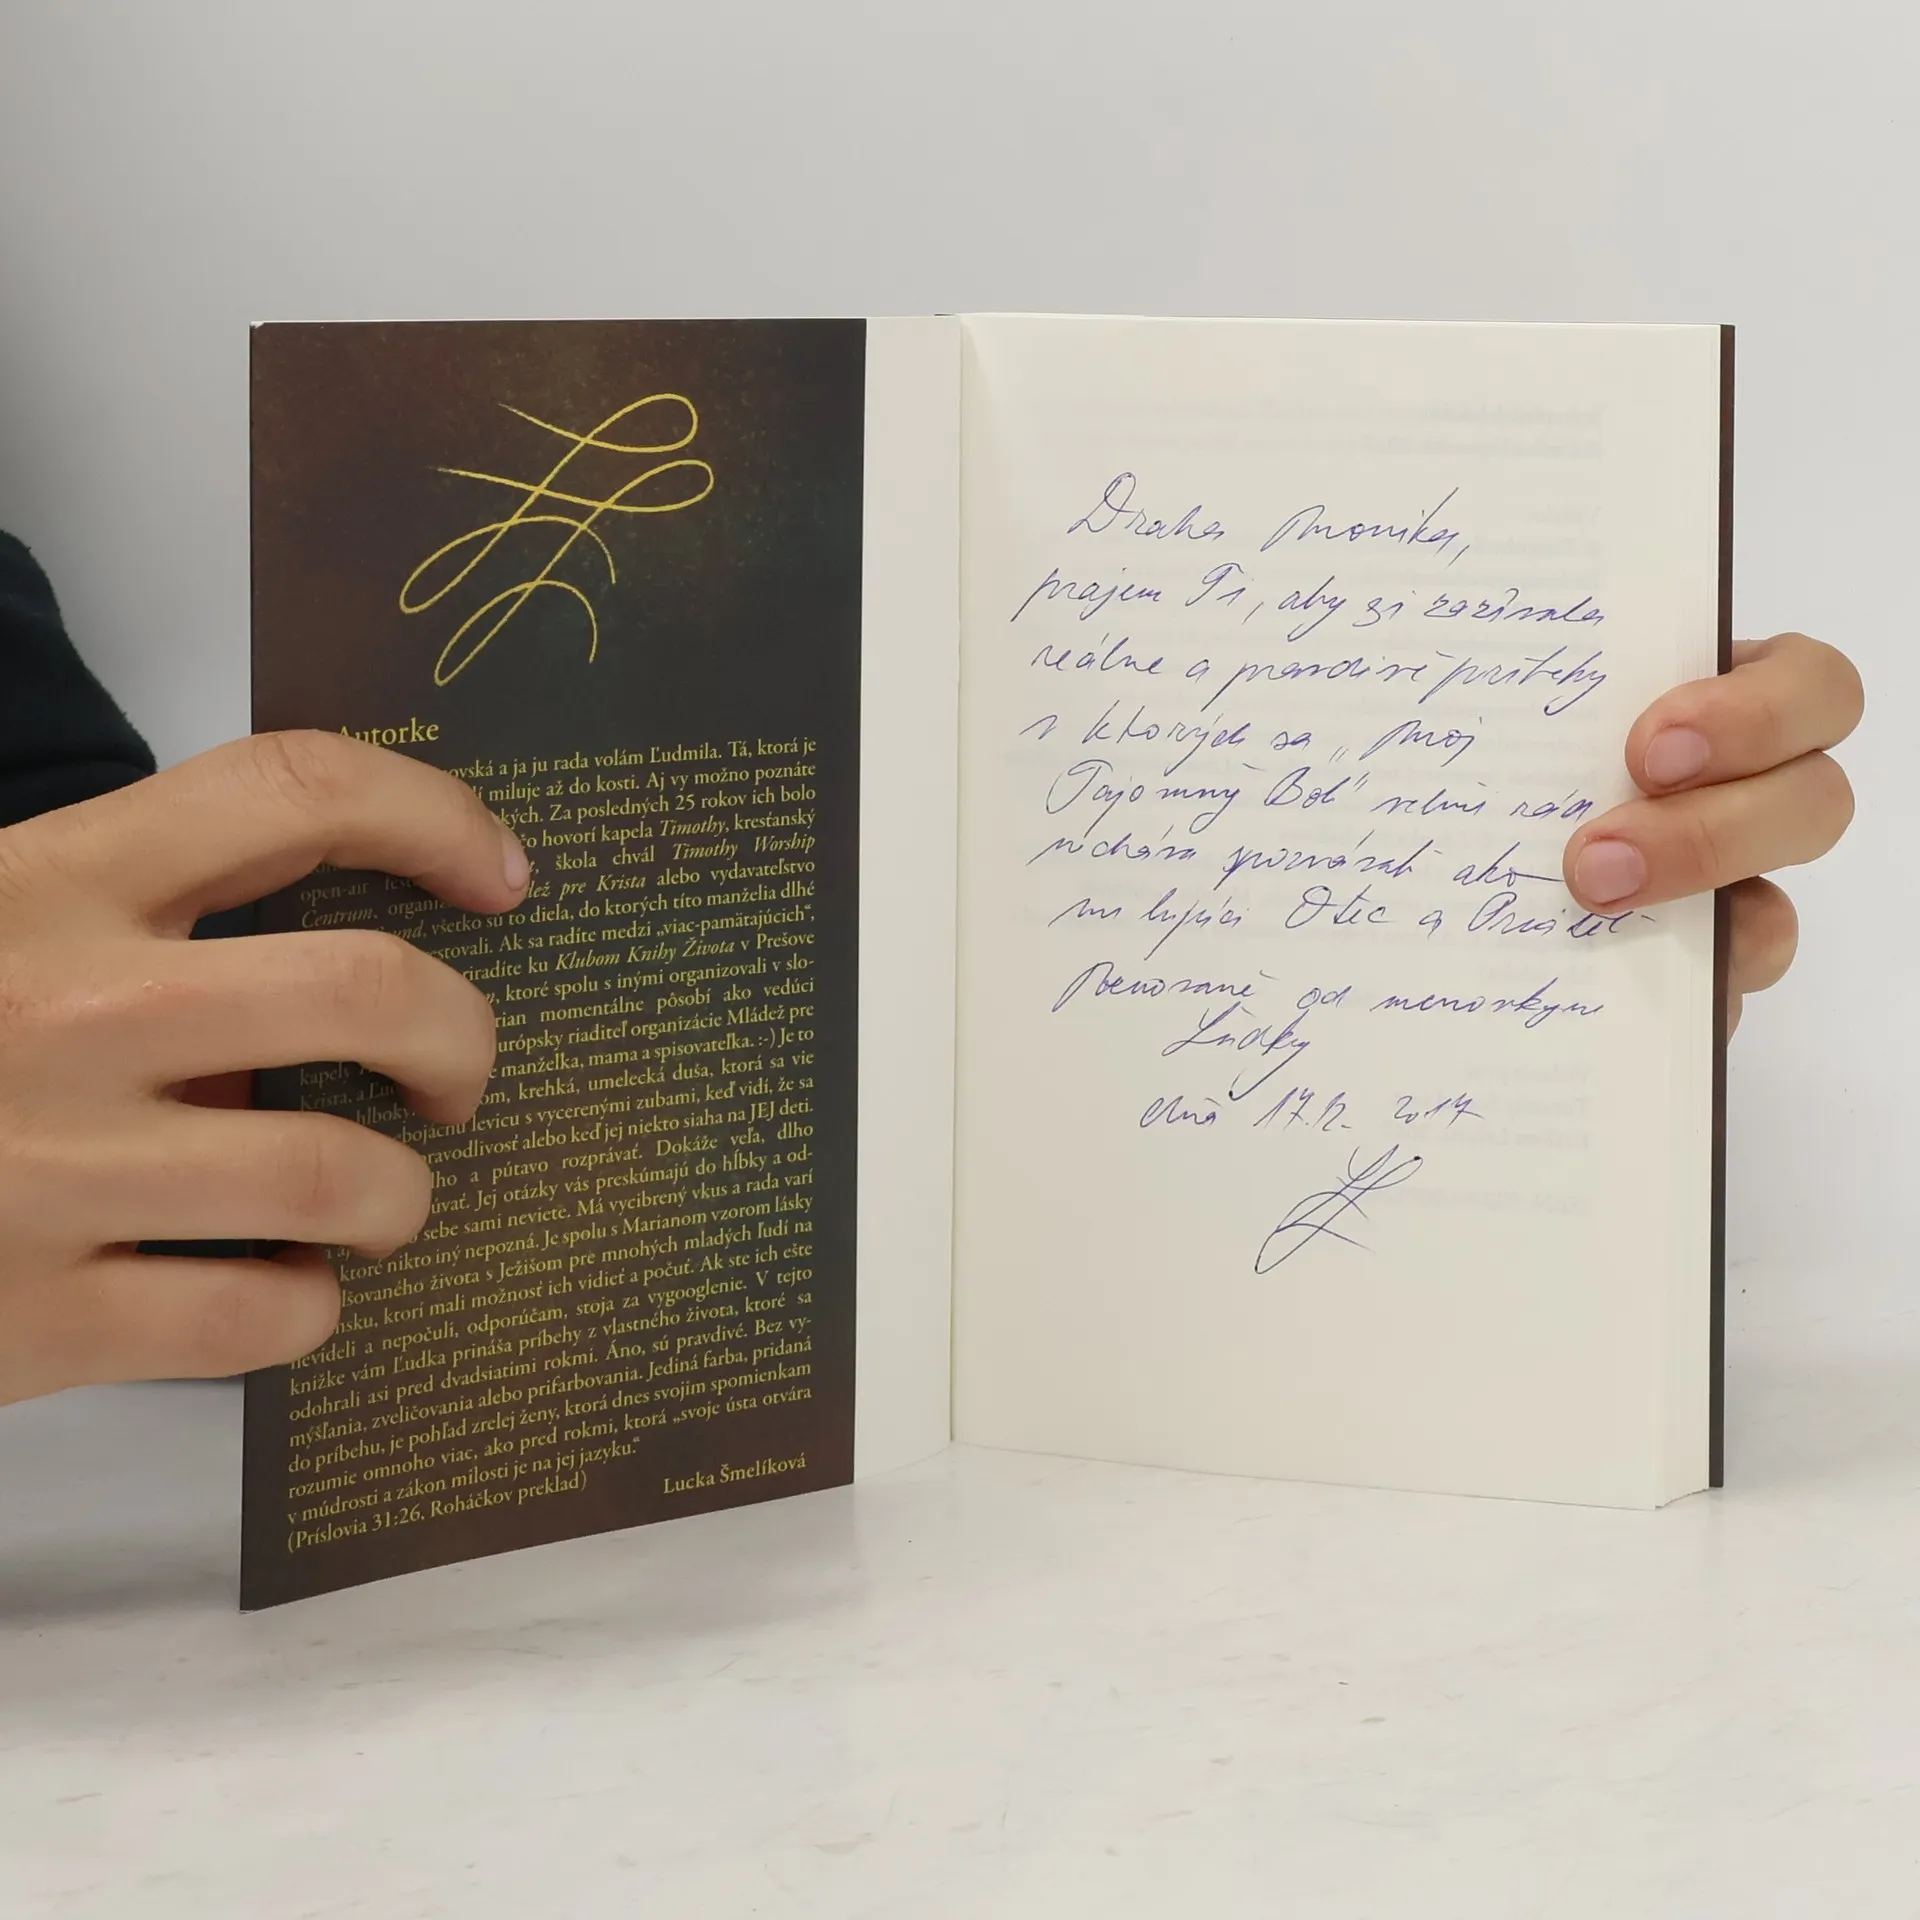 Autorke
ovská a ja ju rada volám Ľudmila. Tá, ktorá je
í miluje až do kosti. Aj vy možno poznáte
kých. Za posledných 25 rokov ich bolo
čo hovorí kapela Timothy, kresťanský
škola chvál Timothy Worship
open-air lež pre Krista alebo vydavateľstvo
Centrum, všetko sú to diela, do ktorých títo manželia dlhé
estovali. Ak sa radíte medzi „viac-pamätajúcich“,
riradíte ku Klubom Knihy Života v Prešove
ktoré spolu s inými organizovali v slo-
rian momentálne pôsobí ako vedúci
kapely urópsky riaditeľ organizácie Mládež pre
Krista, a manželka, mama a spisovateľka. :-) Je to
hlboký om, krehká, umelecká duša, ktorá sa vie
ebojácnu levicu s vycerenými zubami, keď vidí, že sa
ravodlivosť alebo keď jej niekto siaha na JEJ deti.
lho a pútavo rozprávať. Dokáže veľa, dlho
úvať. Jej otázky vás preskúmajú do hĺbky a od-
sebe sami neviete. Má vycibrený vkus a rada varí
ktoré nikto iný nepozná. Je spolu s Marianom vzorom lásky
lšovaného života s Ježišom pre mnohých mladých ľudí na
nsku, ktorí mali možnosť ich vidieť a počuť. Ak ste ich ešte
nevideli a nepočuli, odporúčam, stoja za vygooglenie. V tejto
knižke vám Ľudka prináša príbehy z vlastného života, ktoré sa
odohrali asi pred dvadsiatimi rokmi. Áno, sú pravdivé. Bez vy-
mýšľania, zveličovania alebo prifarbovania. Jediná farba, pridaná
do príbehu, je pohľad zrelej ženy, ktorá dnes svojim spomienkam
rozumie omnoho viac, ako pred rokmi, ktorá „svoje ústa otvára
v múdrosti a zákon milosti je na jej jazyku.“
(Príslovia 31:26, Roháčkov preklad)
Lucka Šmelíková
Drahá Monika,
prajem Ti, aby si zažívala
reálne a pravdivé príbehy
v ktorých sa „Môj
Tajomný Boh“ veľmi rád
nechává spoznávať ako
milujúci Otec a Priateľ
Venované od menovkyne
Ľudky
dňa 17.12. 2017